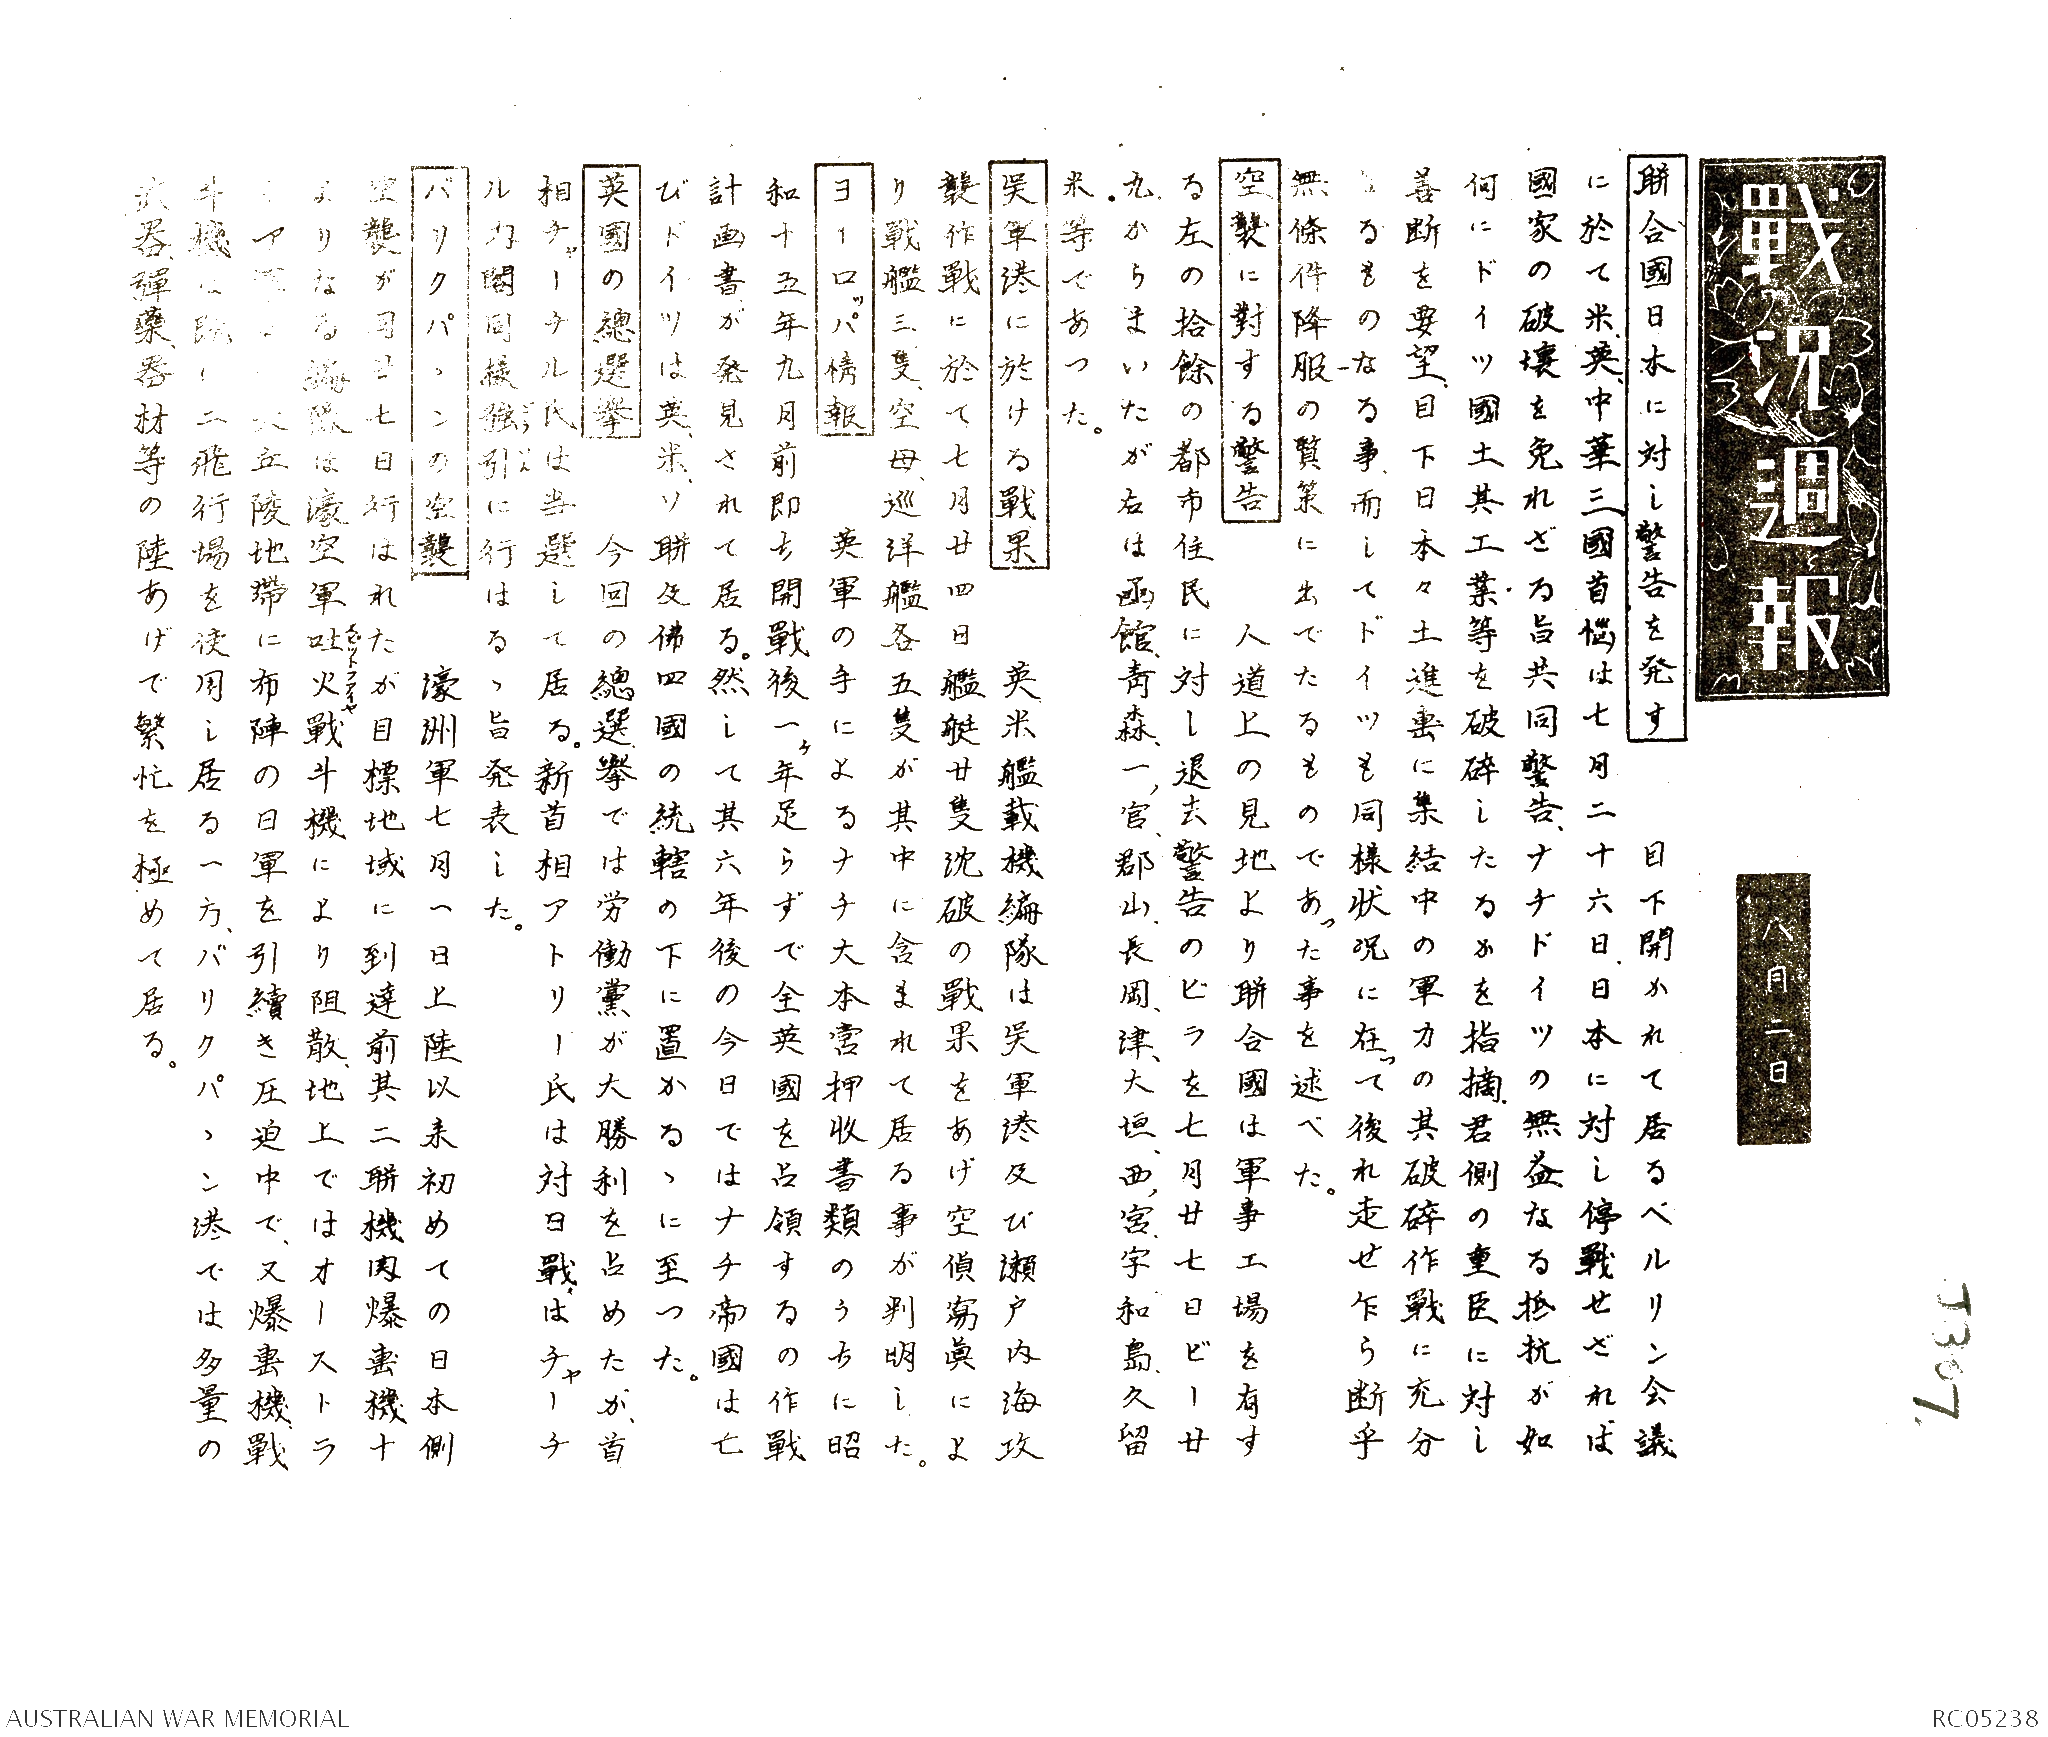 戰況週報
八月二日
J.307.
聯合國日本に対し警告を発す 目下開かれて居るベルリン会議
に於て米、英、中華三國首悩は七月二十六日、日本に対し停戰せざれば
國家の破壊を免れざる旨共同警告、ナチドイツの無益なる抵抗が如
何にドイツ國土其工業等を破碎したるかを指摘、君側の重臣に対し
善断を要望、目下日本々土進出に集結中の軍力の其破碎作戰に充分
るものなる事、而してドイツも同様状況に在つて後れ走せ乍ら断乎
無條件降服の賢策に出でたるものであつた事を述べた。
空襲に對する警告 人道上の見地より聯合國は軍事工場を有す
る左の拾餘の都市住民に対し退去警告のビラを七月廿七日ビー廿
九からまいたが右は函館、青森、一ノ宮、郡山、長岡、津、大垣、西ノ宮、宇和島、久留
米等であつた。
呉軍港に於ける戰果 英米艦載機編隊は呉軍港及び瀬戸内海攻
襲作戰に於て七月廿四日艦艇廿隻沈破の戰果をあげ空偵寫眞によ
り戰艦三隻、空母、巡洋艦各五隻が其中に含まれて居る事が判明した。
ヨーロッパ情報 英軍の手によるナチ大本営押收書類のうちに昭
和十五年九月前即ち開戰後一ヶ年足らずで全英國を占領するの作戰
計画書が発見されて居る。然して其六年後の今日ではナチ帝國は亡
びドイツは英、米、ソ聯及佛四國の統轄の下に置かるゝに至つた。
英國の總選擧 今回の總選擧では労働黨が大勝利を占めたが、首
相チャーチル氏は当選して居る。新首相アトリー氏は対日戰はチャーチ
ル内閣同様強引に行はるゝ旨発表した。
バリクパゝンの空襲 濠洲軍七月一日上陸以来初めての日本側
空襲が同廿七日行はれたが目標地域に到達前其二聯機肉爆撃機十
よりなる編隊は濠空軍吐火戰斗機により阻散、地上ではオーストラ
立陵地帯に布陣の日軍を引續き圧迫中で、又爆撃機、戰
斗機は既に二飛行場を使用し居る一方、バリクパゝン港では多量の
武器、彈藥、器材等の陸あげで繁忙を極めて居る。
AUSTRALIAN WAR MEMORIAL
RC05238